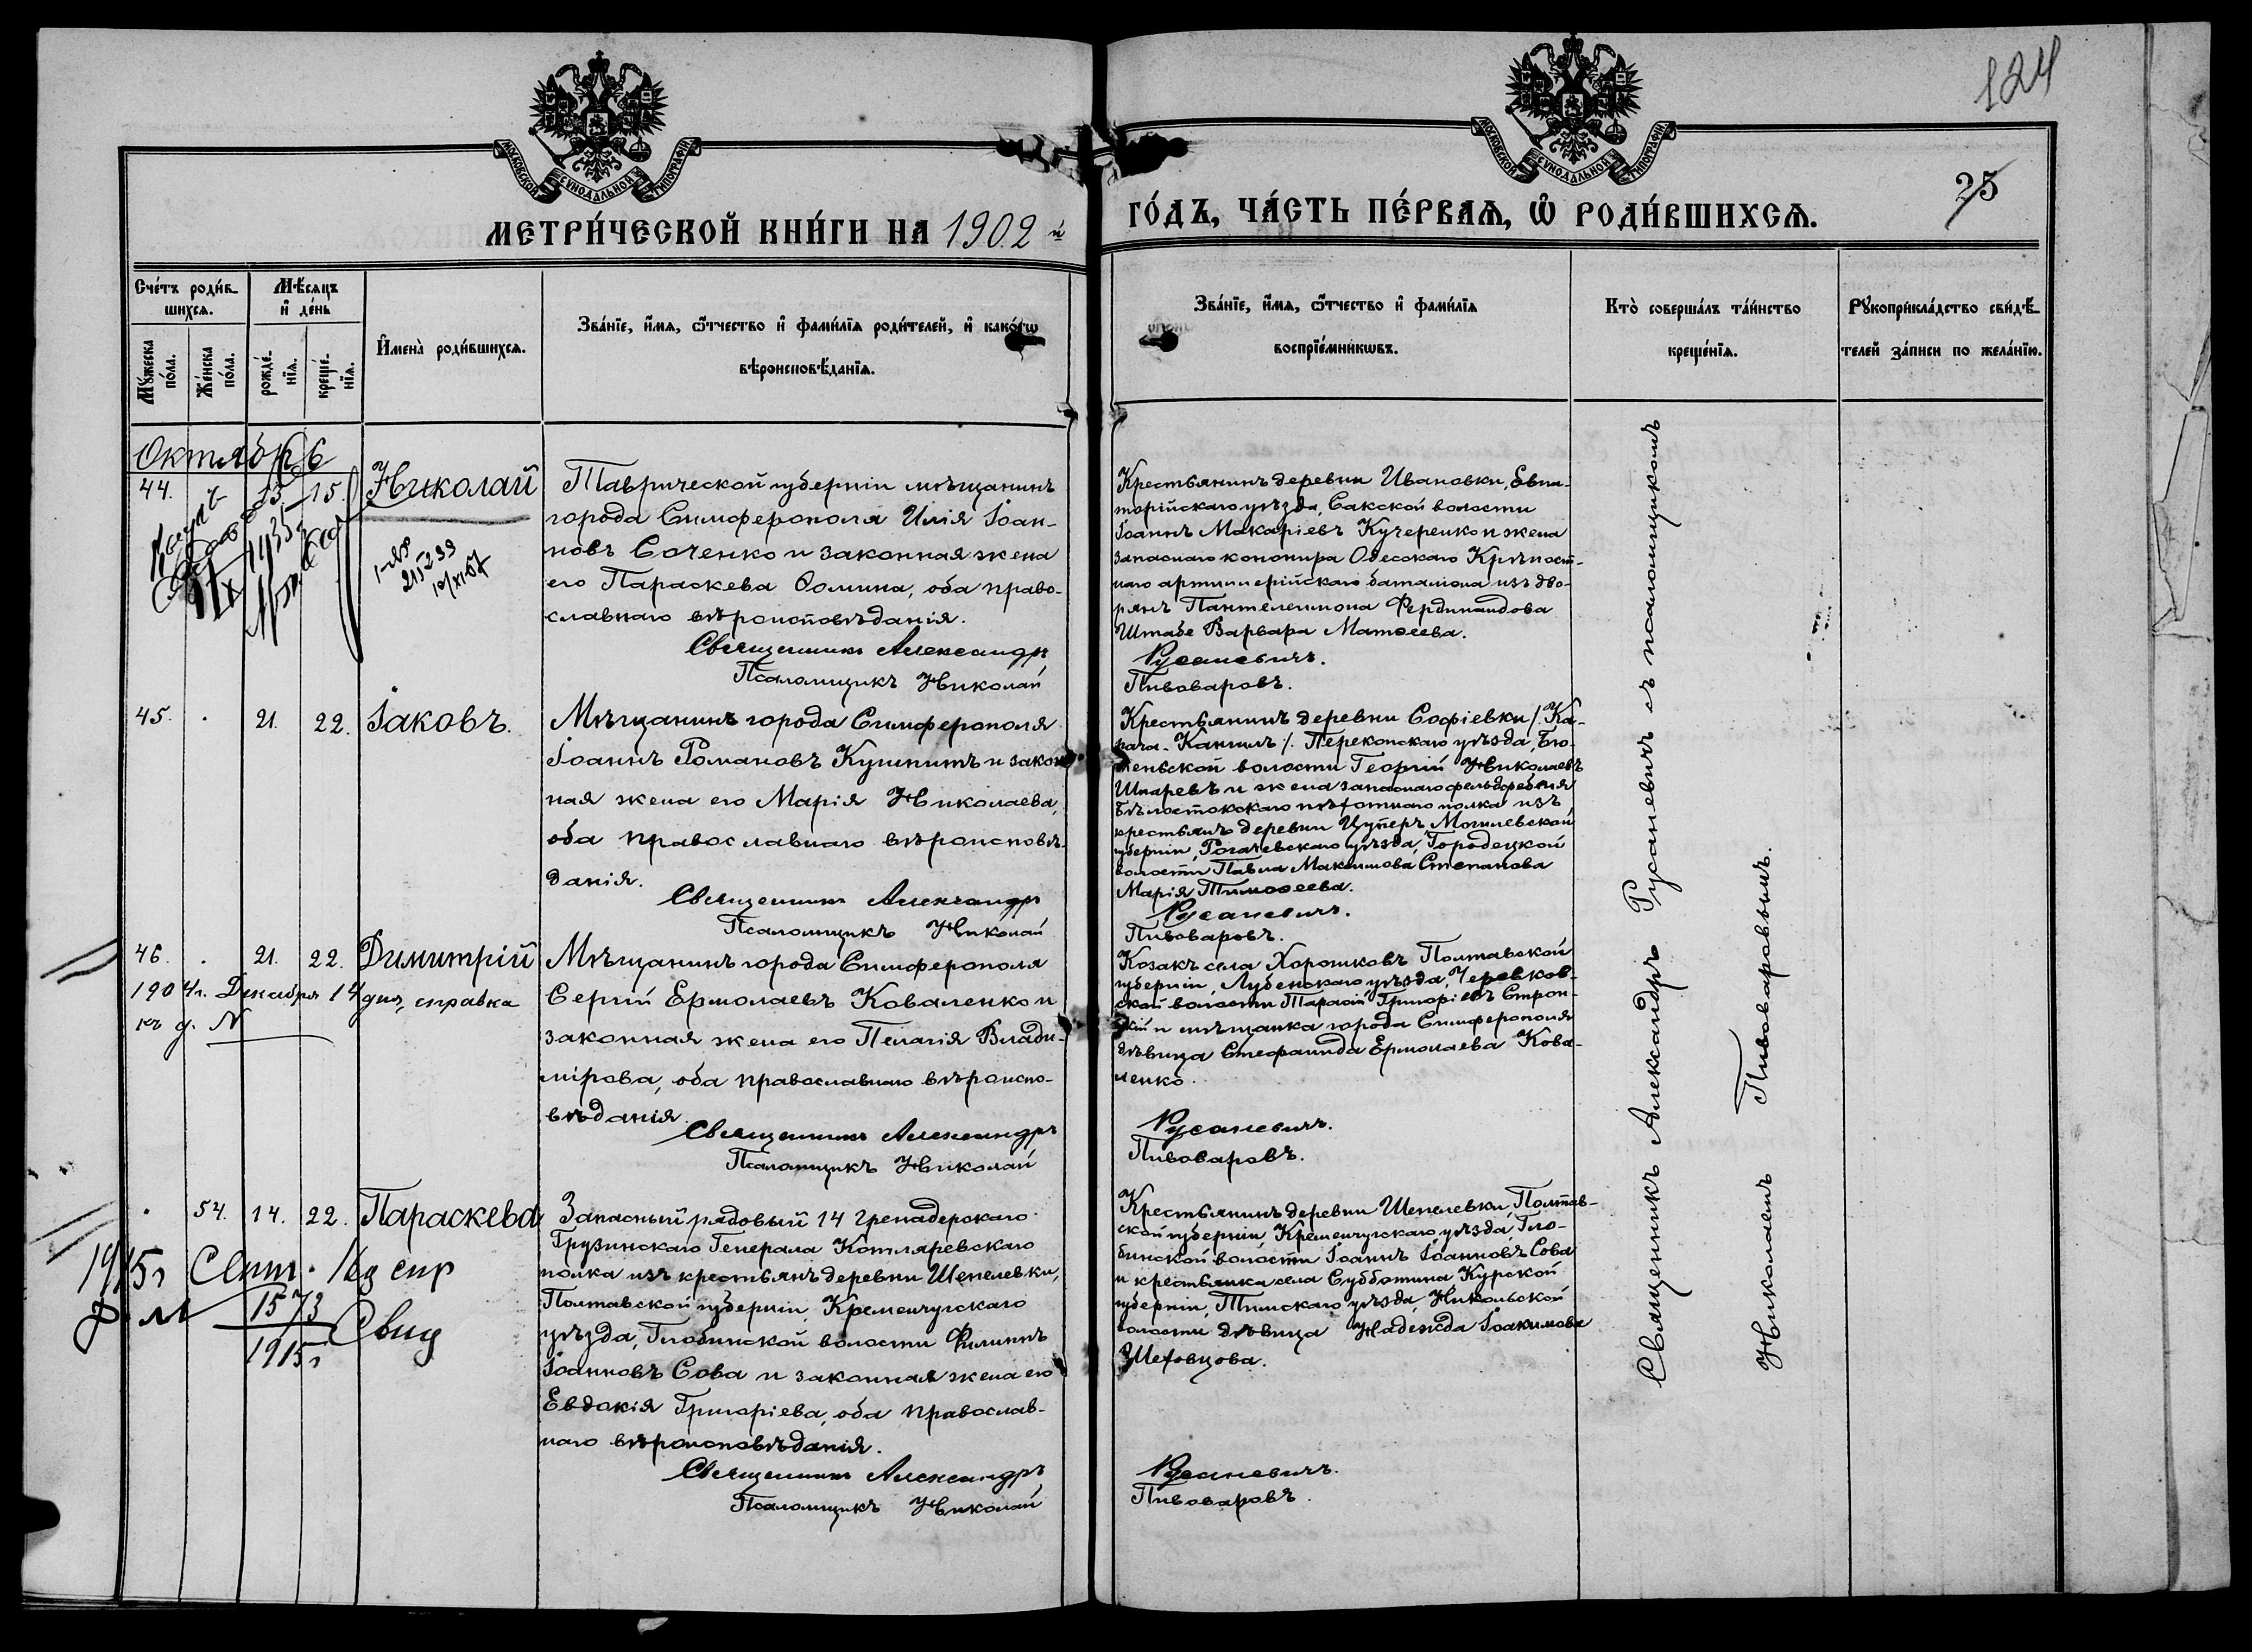 124
25
МОСКОВСКОЙ СѴНОДАЛЬНОЙ ТИПОГРАФІИ
МОСКОВСКОЙ СѴНОДАЛЬНОЙ ТИПОГРАФІИ
МЕТРИ́ЧЕСКОЙ КНИ́ГИ НА 1902 й
ГО́ДЪ, ЧА́СТЬ ПЕ́РВАѦ, Ѽ РОДИ́ВШИХСѦ.
Сче́тъ роди́в-
шихсѧ.
Мꙋжеска по́ла.
Же́нска по́ла.
Мѣ́сѧцъ
и҆ де́нь
рожде́-
нїѧ.
креще́-
нїѧ.
И҆мена̀ роди́вшихсѧ.
Зва́нїе, и҆́мѧ, ѻ҆́тчество и҆ фами́лїѧ роди́телей, и҆ како́гѡ
вѣроисповѣ́данїѧ.
Зва́нїе, и҆́мѧ, ѻ҆́тчество и҆ фами́лїѧ
воспрїе́мникѡвъ.
Кто̀ соверша́лъ та́инство
креще́нїѧ.
Рꙋкоприкла́дство свидѣ́-
телей за́писи по жела́нїю.
Октябрь
44.
13
15.
Николай
1935
21,5239
10/XI-57
Таврической губерніи мѣщанинъ
города Симферополя Илія Іоан-
новъ Соченко и законная жена
его Параскева Ѳомина, оба право-
славнаго вѣроисповѣданія.
Священникъ Александръ
Псаломщикъ Николай
Крестьянинъ деревни Ивановки, Евпа-
торійскаго уѣзда, Сакской волости
Іоаннъ Макаріевъ Кучеренко и жена
запаснаго канонира Одесскаго Крѣпост-
наго артиллерійскаго баталіона изъ дво-
рянъ Пантелеимона Фердинандова
Штабе Варвара Матѳеева.
Русаневичъ.
Пивоваровъ.
45.
21.
22.
Іаковъ.
Мѣщанинъ города Симферополя
Іоаннъ Романовъ Кушнитъ и закон
ная жена его Марія Николаева,
оба православнаго вѣроисповѣ-
данія.
Священникъ Александръ
Псаломщикъ Николай
Крестьянинъ деревни Софіевки /. Ка-
рача-Кангилъ /. Перекопскаго уѣзда, Бю-
теньской волости Георгій Николаевъ
Шпаревъ и жена запаснаго фельдфебеля
Бѣлостокскаго пѣхотнаго полка изъ
крестьянъ деревни Цуперъ, Могилевской
губерніи, Рогачевскаго уѣзда, Городецкой
волости Павла Максимова Степанова
Марія Тимоѳеева.
Русаневичъ.
Пивоваровъ.
46.
21.
22.
Димитрій
1904г. Декабря 14 дня, справка
къ д. N
Мѣщанинъ города Симферополя
Сергій Ермолаевъ Коваленко и
законная жена его Пелагія Влади-
мірова, оба православнаго вѣроиспо-
вѣданія.
Священникъ Александръ
Псаломщикъ Николай
Козакъ села Хорошковъ Полтавской
губерніи, Лубенскаго уѣзда, Черевков-
ской волости Тарасій Григоріевъ Строн-
скій и мѣщанка города Симферополя
дѣвица Стефанида Ермолаева Кова-
ленко.
Русаневичъ.
Пивоваровъ.
54.
14.
22.
Параскева
1915г Сент. 16д спр
1573
1915г
Свид
Запасный рядовый 14 Гренадерскаго
Грузинскаго Генерала Котляревскаго
полка изъ крестьянъ деревни Шепелевки,
Полтавской губерніи, Кременчугскаго
уѣзда, Глобинской волости Филиппъ
Іоанновъ Сова и законная жена его
Евдокія Григоріева, оба православ-
наго вѣроисповѣданія.
Священникъ Александръ
Псаломщикъ Николай
Крестьянинъ деревни Шепелевки, Полтав-
ской губерніи, Кременчугскаго уѣзда, Гло-
бинской волости Іоаннъ Іоанновъ Сова
и крестьянка села Субботина, Курской
губерніи, Тимскаго уѣзда, Никольской
волости дѣвица Надежда Іоакимова
Шеховцова.
Русаневичъ.
Пивоваровъ.
Священникъ Александръ Русаневичъ съ псаломщикомъ
Николаемъ Пивоваровымъ.